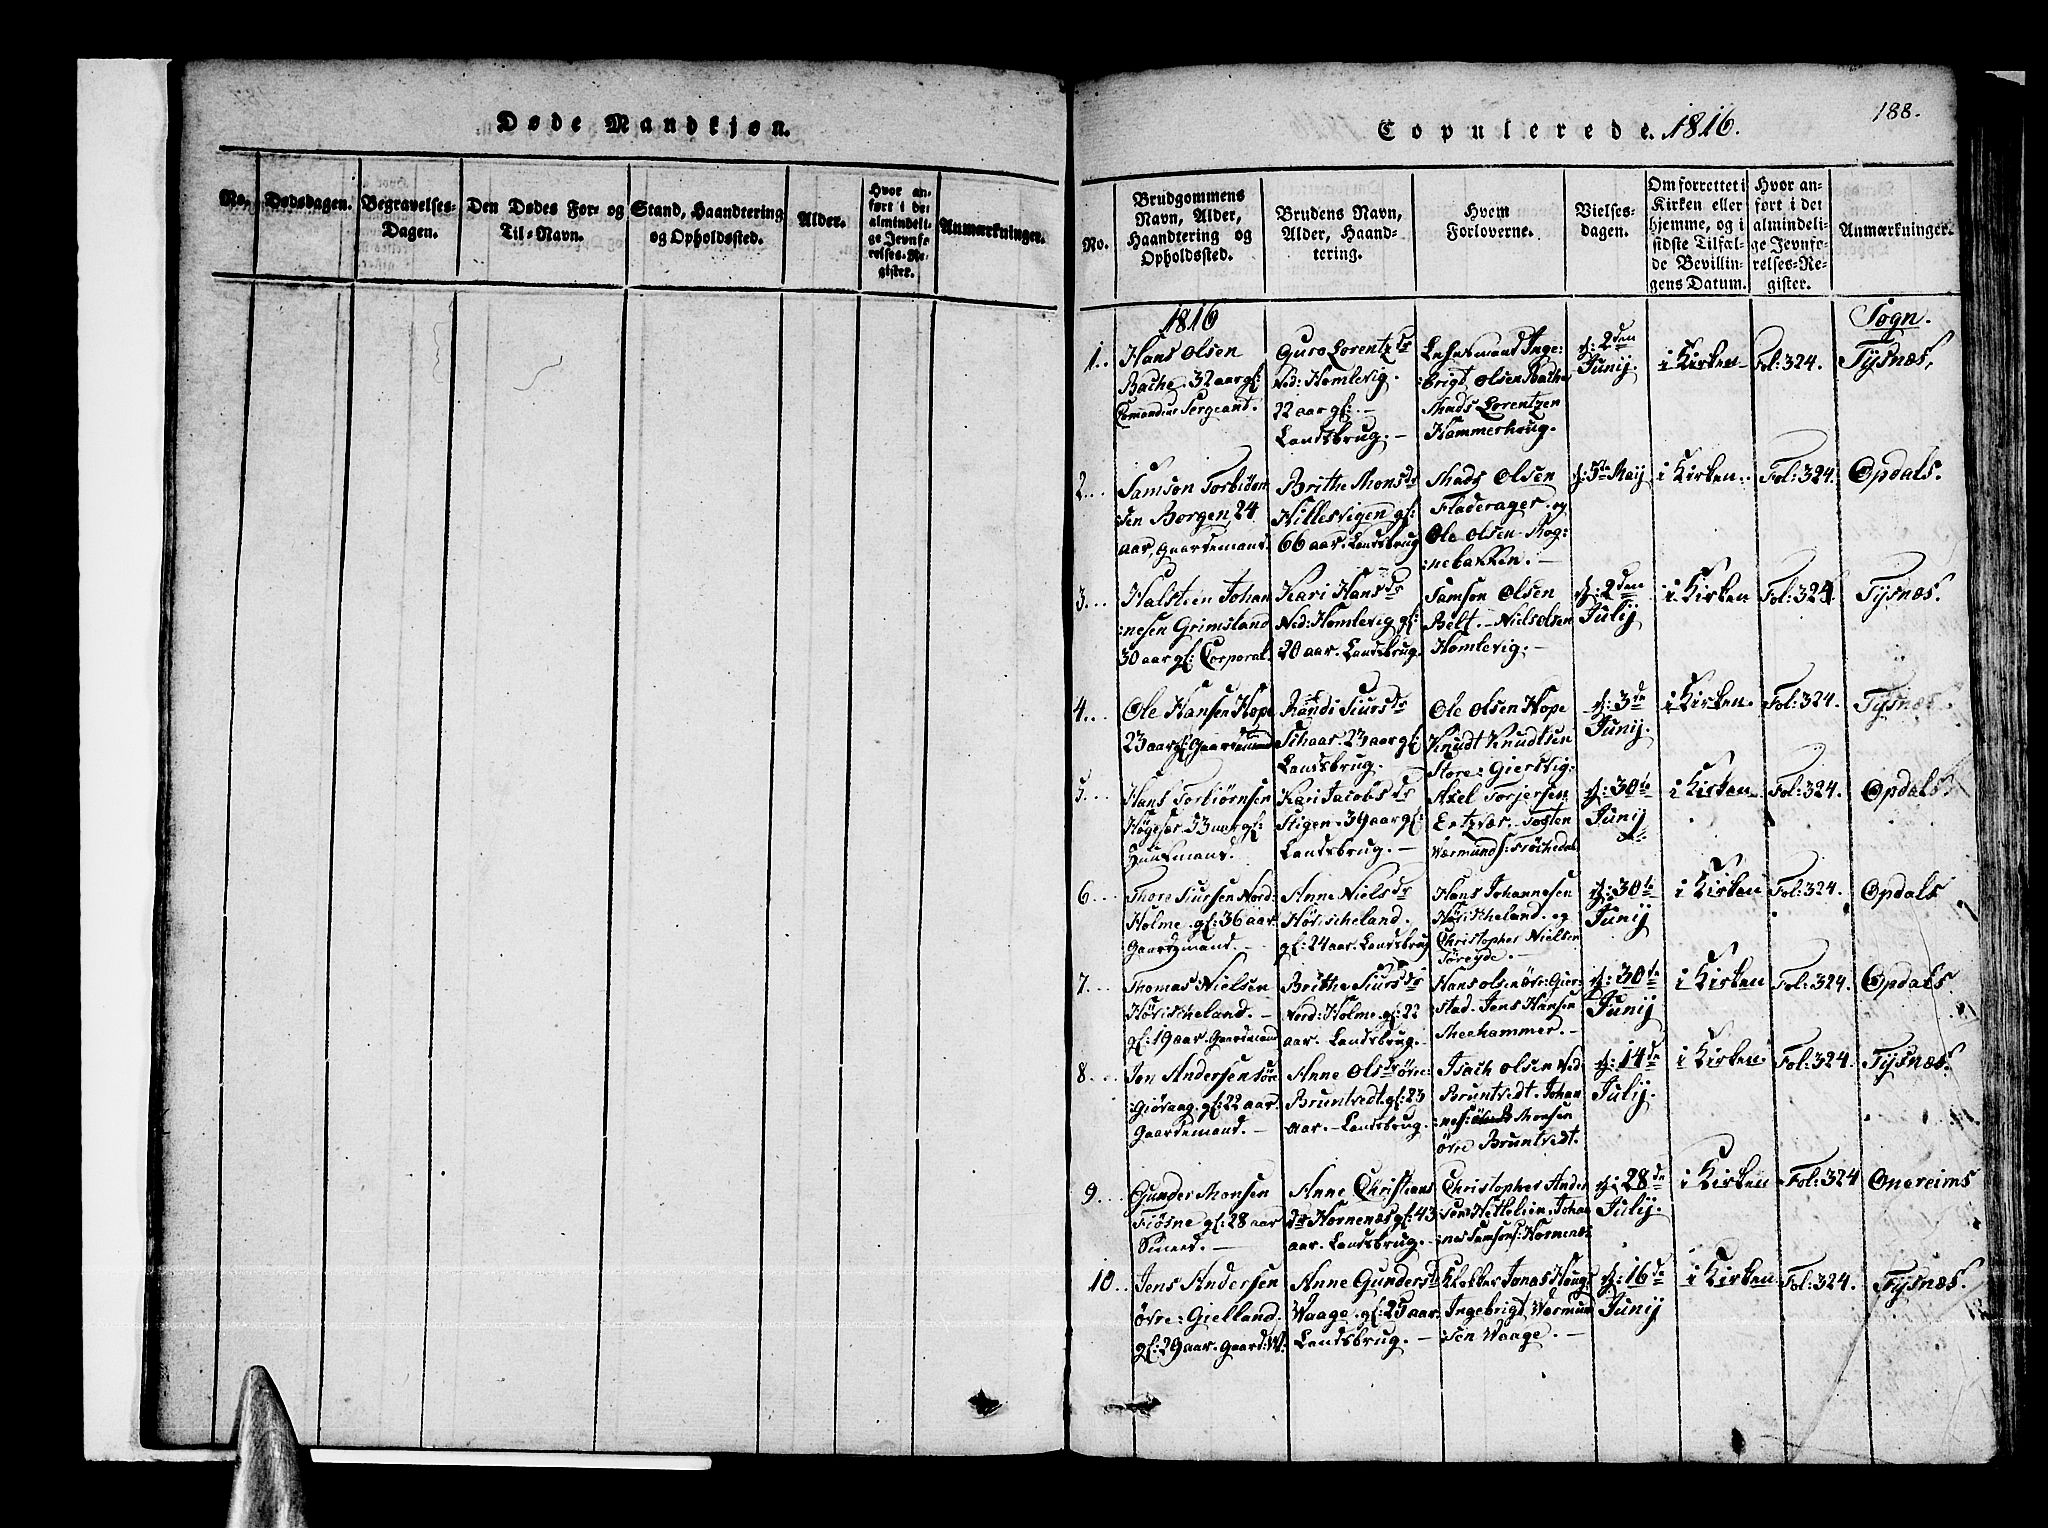 Døde Mandkjøn.
No.
Dødsdagen.
Begravelses-
Dagen.
Den Dødes For- og
Til-Navn.
Stand, Haandtering
og Opholdssted.
Alder.
Hvor an-
ført i det
almindeli-
ge Jevnfø-
relses-Re-
gister.
Anmærkninger.
188.
Copulerede. 1816.
No.
Brudgommens
Navn, Alder,
Haandtering og
Opholdssted.
Brudens Navn,
Alder, Haand-
tering.
Hvem
Forloverne.
Vielses-
dagen.
Om forrettet i
Kirken eller
hjemme, og i
sidste Tilfæl-
de Bevillin-
gens Datum.
Hvor an-
ført i det
almindeli-
ge Jevnfø-
relses-Re-
gister.
Anmærkninger.
1816
Sogn.
1.
Hans Olsen
Bache. 32 aar gl:
Sergeand.
Guro Lorentz dr
Ned: Homlevig.
22 aar gl: –
Landsbrug. –
Lehnsmand Inge:
:brigt Olsen Bache
Mads Lorentzen
Hammerhoug.
d: 2den
Junij.
i Kirken
Fol: 324.
Tysnæs.
2.
Samson Torbiørn
sen Borgen, 24
aar, Gaardemand.
Brithe Mons dr
Hillesvigen gl:
66 aar. Landsbrug
Mads Olsen
Fladerager. og
Ole Olsen Rog:
:nebakken. –
d: 5te May
i Kirken.
Fol: 324.
Opdals.
3.
Halsteen Johan
:nesen Grimsland
30 aar gl: Corporal.
Kari Hans dr
Ned: Homlevig gl:
20 aar. Landsbrug.
Samson Olsen
Belt. – Niels Olsen
Homlevig: –
d: 2den
Julij
i Kirken
Fol: 324.
Tysnæs.
4.
Ole Hansen Hope
23 aar gl: Gaardemand
Randi Siurs dr
Schaar. 23 aar gl:
Landsbrug.
Ole Olsen Hope
Knudt Knudtsen
Store: Giersvig:
d: 3de
Junij.
i Kirken.
Fol: 324.
Tysnæs.
5.
Hans Torbiørnsen
53 aar gl:
Huusmand.
Kari Jacobs dr
Stigen. 39 aar gl:
Landsbrug. –
Axel Torjersen
Entzvær. – Tosten
Wærmunds:
d: 30te
Junij
i Kirken
Fol: 324.
Opdals
6.
Thore Siursen Nord:
Holme. gl: 36 aar
Gaardemand. –
Anne Niels dr
Høvischeland.
gl: 24 aar. Landsbrug
Hans Johannesen
Høvischeland. og
Christopher Nielsen
Søreyde. –
d: 30te
Junij
i Kirken
Fol: 324.
Opdals
7.
Thomas Nielsen
Høvischeland. –
gl: 19 aar. Gaardmand
Brithe Siurs dr
Nord: Holme. gl: 22
aar. Landsbrug.
Hans Olsen Øvr: Gier:
stad. Jens Hansen
Meehammer. –
d: 30te
Junij
i Kirken
Fol: 324.
Opdals
8.
Jon Andersen Søre
:Giøvaag. gl: 22 aar.
Gaardemand. –
Anne Ols dr Øvre:
Bruntvedt. gl: 23
aar. – Landsbrug.
Isach Olsen Ned
Bruntvedt. Johan
:nes: Monsen
Øvre Bruntvedt.
d: 14de
Julij.
i Kirken
Fol: 324.
Tysnæs.
9.
Gunder Monsen
Fiøsne gl: 28 aar
Smed. –
Anne Christians
dr Hornenes gl: 43
aar. Landsbrug. –
Christopher Ander
sen Hetteleien. Johan
:nes Samsons: Hornenes
d: 28de
Julij.
i Kirken
Fol: 324
Onereims
10.
Jens Andersen
Øvre: Gielland.
gl: 29 aar. Gaard: M:
Anne Gunders dr
Waage. gl: 25 aar.
Landsbrug. –
Klokker Jonas Houg:
Ingebrigt Wermund
:sen Waage. –
d: 16de
Junij
i Kirken
Fol: 324.
Tysnæs.